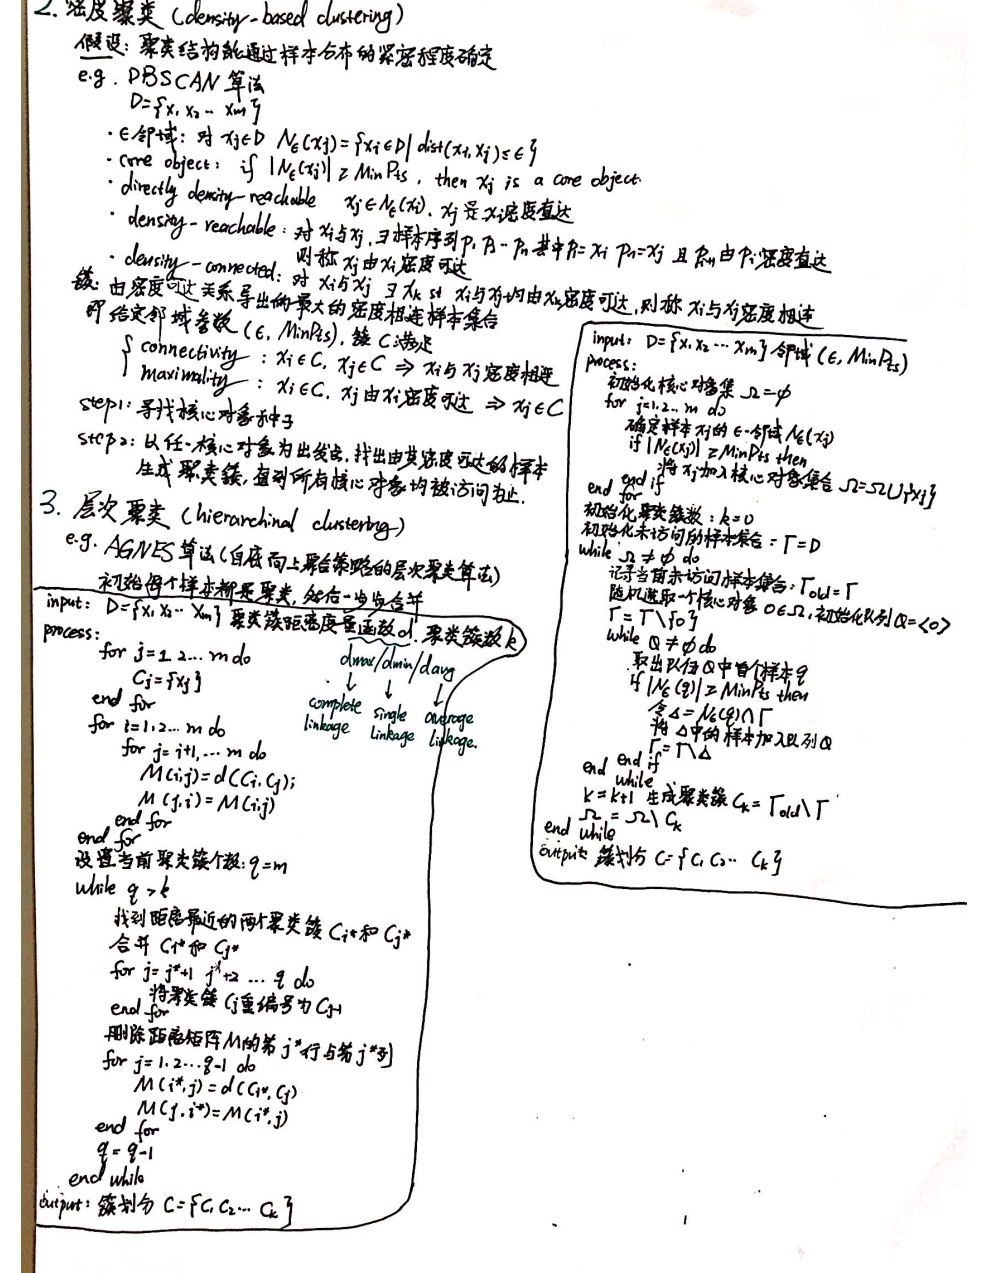 2. 密度聚类 (density-based clustering)
假设: 聚类结构能通过样本分布的紧密程度确定
e.g. DBSCAN 算法
D={x₁ x₂ ... xm}
· ϵ邻域: 对 xj∈D Nϵ(xj)={xi∈D | dist(xi,xj)≤ϵ}
· core object: if |Nϵ(xj)| ≥ MinPts, then xj is a core object.
· directly density-reachable xj∈Nϵ(xi), xj 是 xi 密度直达
· density-reachable: 对 xi 与 xj, ∃ 样本序列 p₁ p₂ ... pn 其中 p₁=xi pn=xj 且 pi+1 由 pi 密度直达
则称 xj 由 xi 密度可达
· density-connected: 对 xi 与 xj ∃ xk st xi 与 xj 均由 xk 密度可达, 则称 xi 与 xj 密度相连
簇: 由密度可达关系导出的最大的密度相连样本集合
即给定邻域参数 (ϵ, MinPts), 簇 C 满足
{ connectivity : xi∈C, xj∈C ⇒ xi 与 xj 密度相连
maximality : xi∈C, xj 由 xi 密度可达 ⇒ xj∈C
step1: 寻找核心对象种子
step2: 以任一核心对象为出发点, 找出由其密度可达的样本
生成聚类簇, 直到所有核心对象均被访问为止.
input: D={x₁ x₂ ... xm} 邻域 (ϵ, MinPts)
process:
初始化核心对象集 Ω=∅
for j=1.2... m do
确定样本 xj 的 ϵ-邻域 Nϵ(xj)
if |Nϵ(xj)| ≥ MinPts then
将 xj 加入核心对象集合 Ω=Ω∪{xj}
end if
end for
初始化聚类簇数: k=0
初始化未访问的样本集合: Γ=D
while Ω ≠ ∅ do
记录当前未访问样本集合: Γold=Γ
随机选取一个核心对象 o∈Ω, 初始化队列 Q=<o>
Γ=Γ\{o}
while Q ≠ ∅ do
取出队列 Q 中首个样本 q
if |Nϵ(q)| ≥ MinPts then
令 Δ=Nϵ(q)∩Γ
将 Δ 中的样本加入队列 Q
Γ=Γ\Δ
end if
end while
k=k+1 生成聚类簇 Ck=Γold\Γ
Ω=Ω\Ck
end while
output: 簇划分 C={C₁ C₂ ... Ck}
3. 层次聚类 (hierarchinal clustering)
e.g. AGNES 算法 (自底向上聚合策略的层次聚类算法)
初始每个样本都是聚类, 然后一步步合并
input: D={x₁ x₂ ... xm} 聚类簇距离度量函数 d. 聚类簇数 k
dmax/dmin/davg
↓ ↓ ↓
complete linkage single linkage average linkage.
process:
for j=1 2... m do
Cj={xj}
end for
for i=1.2... m do
for j=i+1, ... m do
M(i,j)=d(Ci, Cj);
M(j,i)=M(i,j)
end for
end for
设置当前聚类簇个数: q=m
while q>k
找到距离最近的两个聚类簇 Ci* 和 Cj*
合并 Ci* 和 Cj*
for j=j*+1 j*+2 ... q do
将聚类簇 Cj 重编号为 Cj-1
end for
删除距离矩阵 M 的第 j* 行与第 j* 列
for j=1.2...q-1 do
M(i*,j)=d(Ci*, Cj)
M(j,i*)=M(i*,j)
end for
q=q-1
end while
output: 簇划分 C={C₁ C₂ ... Ck}